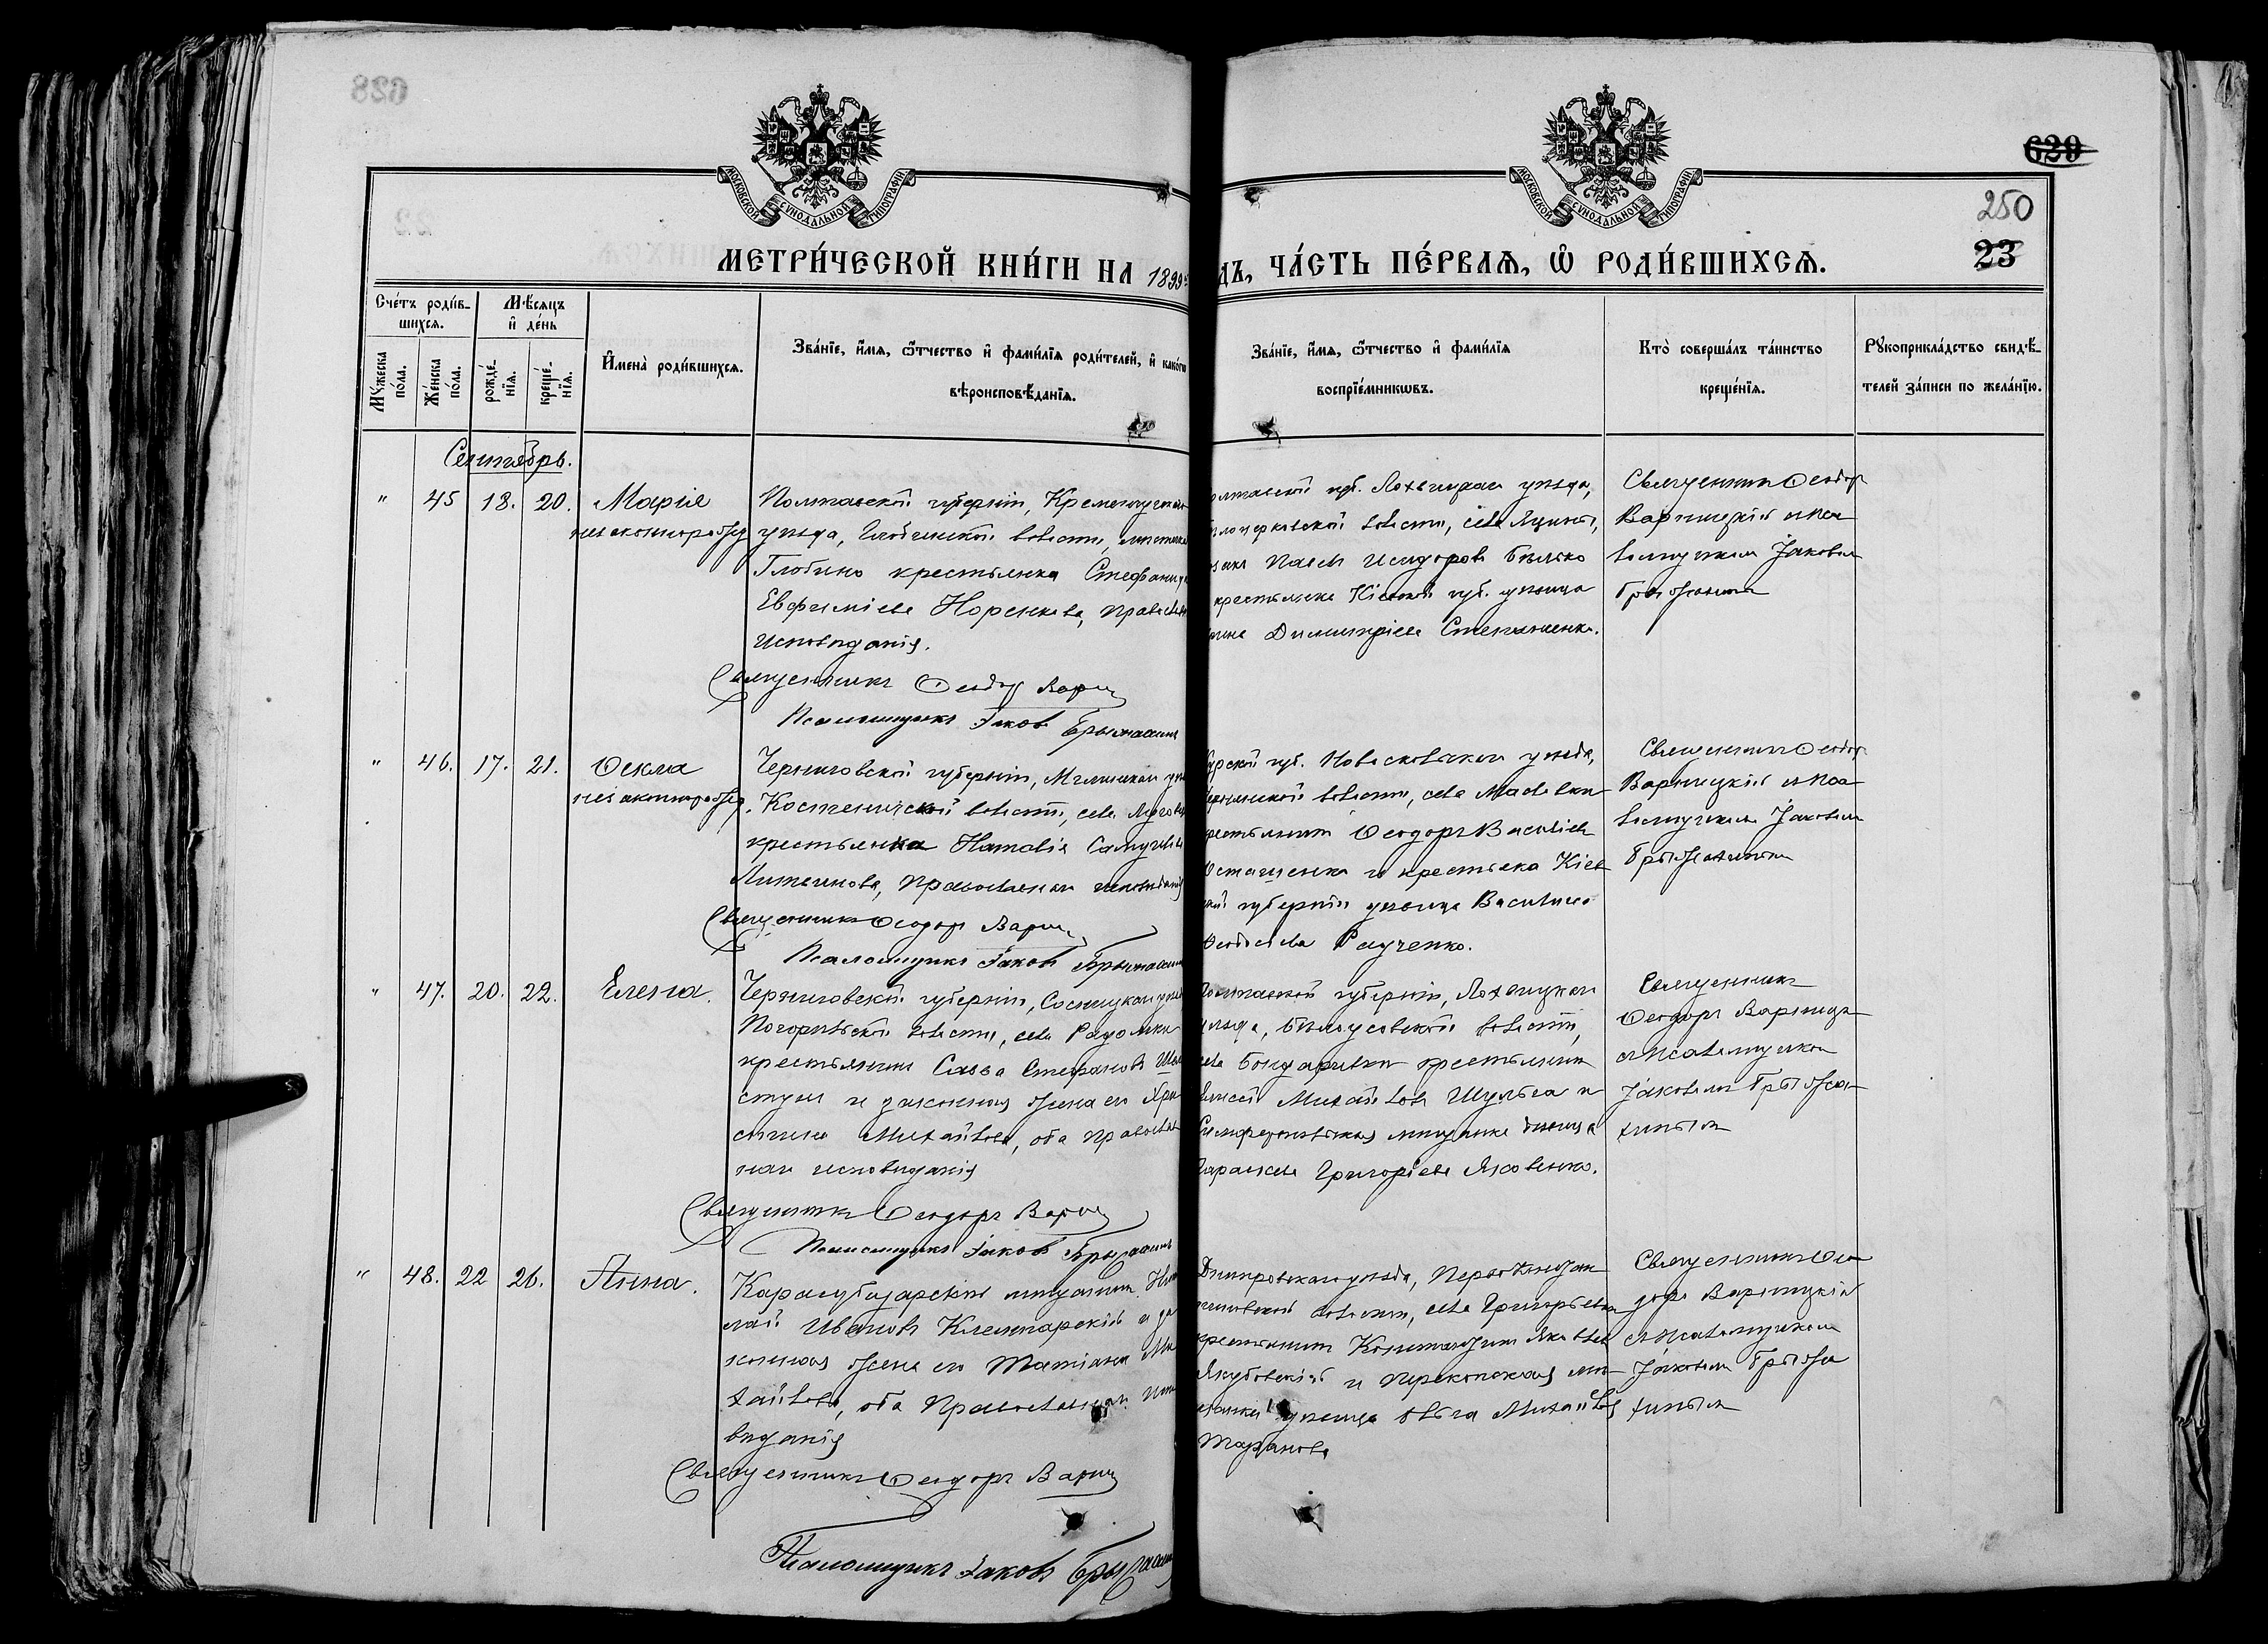 628
629
250
23
МОСКОВСКОЙ СУНОДАЛЬНОЙ ТИПОГРАФІИ
МОСКОВСКОЙ СУНОДАЛЬНОЙ ТИПОГРАФІИ
МЕТРИ́ЧЕСКОЙ КНИ́ГИ НА 1899
ДЪ, ЧА́СТЬ ПЕ́РВАЯ, Ѡ҆ РОДИ́ВШИХСЯ.
Сче́тъ роди́в-
шихся.
Мѣсяцъ
и҆ де́нь
Мꙋжеска
по́ла.
Же́нска
по́ла.
рожде́-
нїя.
креще́-
нїя.
И҆мена̀ роди́вшихся.
Зва́нїе, и҆́мя, ѻ҆́тчество и҆ фами́лїя роди́телей, и҆ како́гѡ
вѣроисповѣ́данїя.
Зва́нїе, и҆́мя, ѻ҆́тчество и҆ фами́лїя
воспрїе́мникѡвъ.
Кто̀ соверша́лъ та́инство
креще́нїя.
Рꙋкоприкла́дство свидѣ́-
телей за́писи по жела́нїю.
Сентябрь.
" 45 18. 20. Марія
незаконнорожд
Полтавской губерніи, Кременчугскаго
уѣзда, Глобинской волости, мѣстечка
Глобино крестьянка Стефанида
Евфиміева Норенкова, православн
исповѣданія.
Священникъ Ѳеодоръ Вариц
Псаломщикъ Іаковъ Брыжахинъ
олтавской губ. Лохвицкаго уѣзда,
волости, села Яцины,
закъ Павелъ Исидоровъ Бѣлько
крестьянка Кіевской губ. дѣвица
Димитріева Степаненко.
Священникъ Ѳеодоръ
Варницкій съ пса
ломщикомъ Іаковомъ
Брыжахинымъ
" 46. 17. 21. Ѳекла
незаконнорожд.
Черниговской губерніи, Мглинскаго уѣз
Костеничской волости, села
крестьянка Наталія Самуилова
Литвинова, Православнаго исповѣданія
Священникъ Ѳеодоръ Вариц
Псаломщикъ Іаковъ Брыжахинъ
урской губ. Новоскольскаго уѣзда,
волости, села Масловки
рестьянинъ Ѳеодоръ Васильевъ
Осташенко и крестьянка Кіев
ской губерніи дѣвица Василиса
Ѳеодосіева Радченко.
Священникъ Ѳеодоръ
Варницкій съ пса
ломщикомъ Іаковомъ
Брыжахинымъ
" 47. 20. 22. Елена.
Черниговской губерніи, Сосницкаго уѣз
Погорѣльской волости, села Радомки
крестьянинъ Савва Стефановъ
и законная жена его Хри
стина Михайлова, оба православ
наго исповѣданія
Священникъ Ѳеодоръ Вариц
Псаломщикъ Іаковъ Брыжахинъ
Полтавской губерніи, Лохвицкаго
уѣзда, Бѣлоусовской волости,
села Бондаревки крестьянинъ
Алексѣй Михайловъ Шульга и
Симферопольская мѣщанка дѣвица
Параскева Григоріева Яковенко.
Священникъ
Ѳеодоръ Варницкі
съ псаломщикомъ
Іаковомъ Брыжа-
хинымъ
" 48. 22 26. Анна.
Карасубазарскій мѣщанинъ Ни
лай Ивановъ Клеитарскій и за
конная жена его Татіана Ми
хайлова, оба Православнаго испо
вѣданія
Священникъ Ѳеодоръ Вариц
Псаломщикъ Іаковъ Брыжахинъ
Днѣпровскаго уѣзда, Первоконстан
тиновской волости, села Григорьевка
крестьянинъ Константинъ Яковлев
Якубовскій и Перекопская мѣ-
щанка дѣвица Ольга Михайлова
Таранова
Священникъ Ѳео
доръ Варницкій
съ псаломщикомъ
Іаковомъ Брыжа
хинымъ